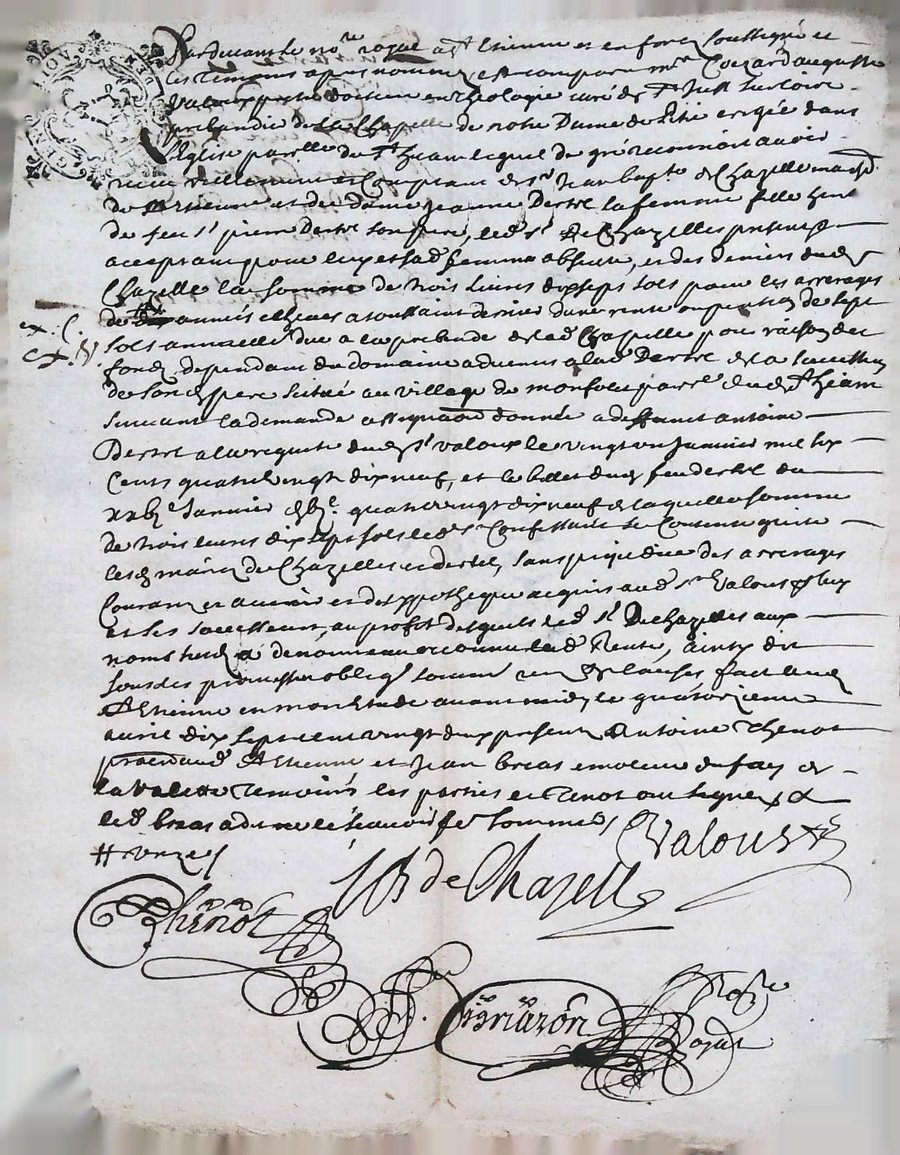 Pardevant le no.re royal a St Etienne en forez soussigné et
les temoins apres nommez est comparu m.re Auguste
Valous pretre docteur en theologie curé de St Just sur loire
prebandié de la Chapelle de notre Dame de Pitié erigée dans
l'Eglise parelle de St heam lequel de gré reconnoit avoir
receu reellement et Comptant de Sr Jean bapte de Chazelle marchd
de St Etienne et de damle jeanne Dertre sa femme fille
de feu Sr pierre Dertre son pere, led. Sr de Chazelles present
acceptant pour luy et sad. femme absente, et des deniers dud.
Chazelle la somme de trois livres dix sept sols pour les arrerages
de années echeues a toussaint dernier dune rente ou pention de sept
sols annuelle due a la prebande de lad. Chapelle pour raison des
fonds dependant du domaine advenus a lad. Dertre de la succession
de son pere situé au village de monfou parre dud. St heam
suivant la demande assignaon donnée a deffunct antoine
Dertre a la requete dud. Sr valoux le vingt un janvier mil six
Cents quatre vingt dix neuf, et le billet dud. feu dertre du
janvier quatre vingt dix neuf de laquelle somme
de trois livres dix sept sols led. Sr Confessant se Contente quitte
lesd. mariez de Chazelles et dertre, sans prejudice des arrerages
Courans et avenir et de l'ypotheque acquis aud. Sr Valous
et ses successeurs, au profit desquels led. Sr De Chazelles aux
noms susd. a de nouveau reconnu lad. Rente, Ainsy dit
sous les promesses oblig. soumi. ren. & clauses, fait aud.
St Etienne en mon Etude avant midy le quatorzieme
avril dix sept cent vingt deux presens Antoine Thenot
praticien aud. St Etienne et Jean breas emoleur du fay de
la valette temoins les parties et Tenot ont signé &
led. breas a declaré ne le sçavoir de ce sommé
# onze
Valous
JB de Chazelle
Thenot
Terrazon
nore
Royal